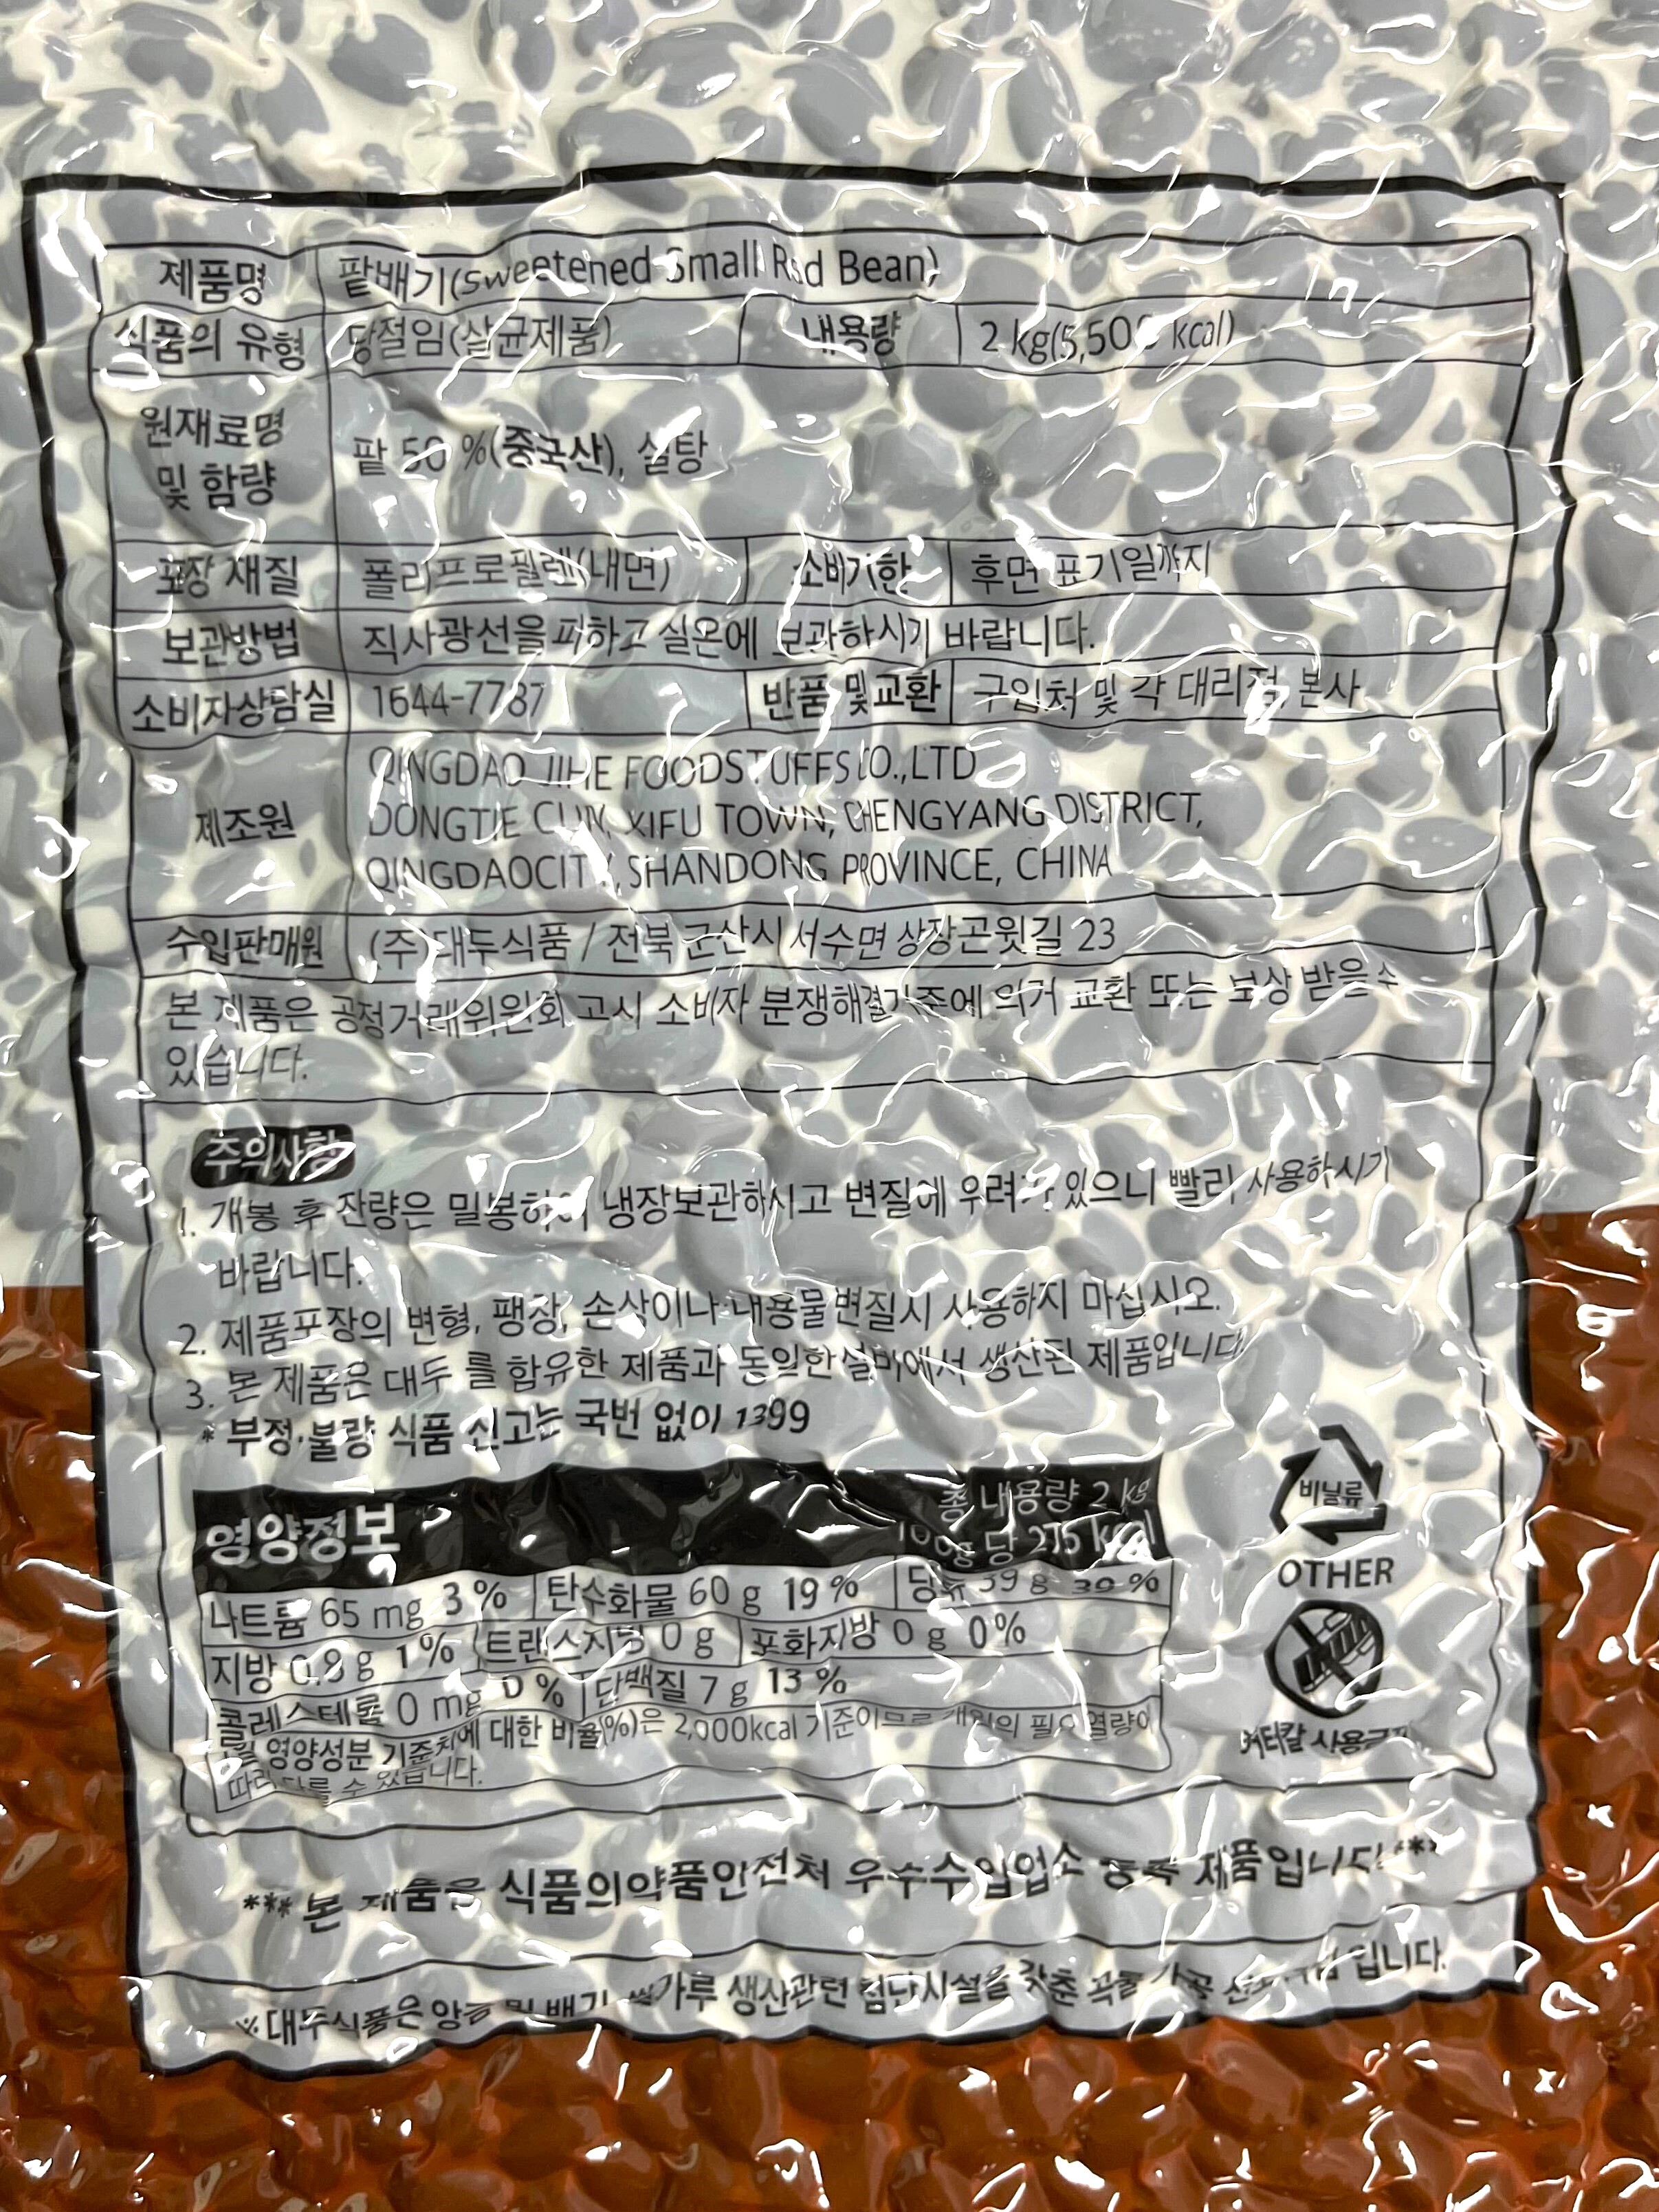 제품명 팥배기(Sweetened Small Red Bean)
식품의 유형 당절임(살균제품) 내용량 2 kg(5,500 kcal)
원재료명
및 함량
팥 50 %(중국산), 설탕
포장 재질 폴리프로필렌(내면) 소비기한 후면 표기일까지
보관방법 직사광선을 피하고 실온에 보관하시기 바랍니다.
소비자상담실 1644-7787 반품 및 교환 구입처 및 각 대리점, 본사
제조원
QINGDAO JIHE FOODSTUFFS CO.,LTD
DONGTIE CUN, XIFU TOWN, CHENGYANG DISTRICT,
QINGDAOCITY, SHANDONG PROVINCE, CHINA
수입판매원 (주)대두식품 / 전북 군산시 서수면 상장곤윗길 23
본 제품은 공정거래위원회 고시 소비자 분쟁해결기준에 의거 교환 또는 보상 받을 수
있습니다.
주의사항
1. 개봉 후 잔량은 밀봉하여 냉장보관하시고 변질에 우려가 있으니 빨리 사용하시기
바랍니다.
2. 제품포장의 변형, 팽창, 손상이나 내용물 변질시 사용하지 마십시오.
3. 본 제품은 대두 를 함유한 제품과 동일한 설비에서 생산된 제품입니다.
* 부정·불량 식품 신고는 국번 없이 1399
영양정보
총 내용량 2 kg
100g 당 275 kcal
나트륨 65 mg 3 % 탄수화물 60 g 19 % 당류 39 g 39 %
지방 0.8 g 1 % 트랜스지방 0 g 포화지방 0 g 0%
콜레스테롤 0 mg 0 % 단백질 7 g 13 %
1일 영양성분 기준치에 대한 비율(%)은 2,000kcal 기준이므로 개인의 필요 열량에
따라 다를 수 있습니다.
비닐류
OTHER
커터칼 사용금지
*** 본 제품은 식품의약품안전처 우수수입업소 등록 제품입니다 ***
※ 대두식품은 앙금 및 배기, 쌀가루 생산관련 첨단시설을 갖춘 곡물 가공 입니다.